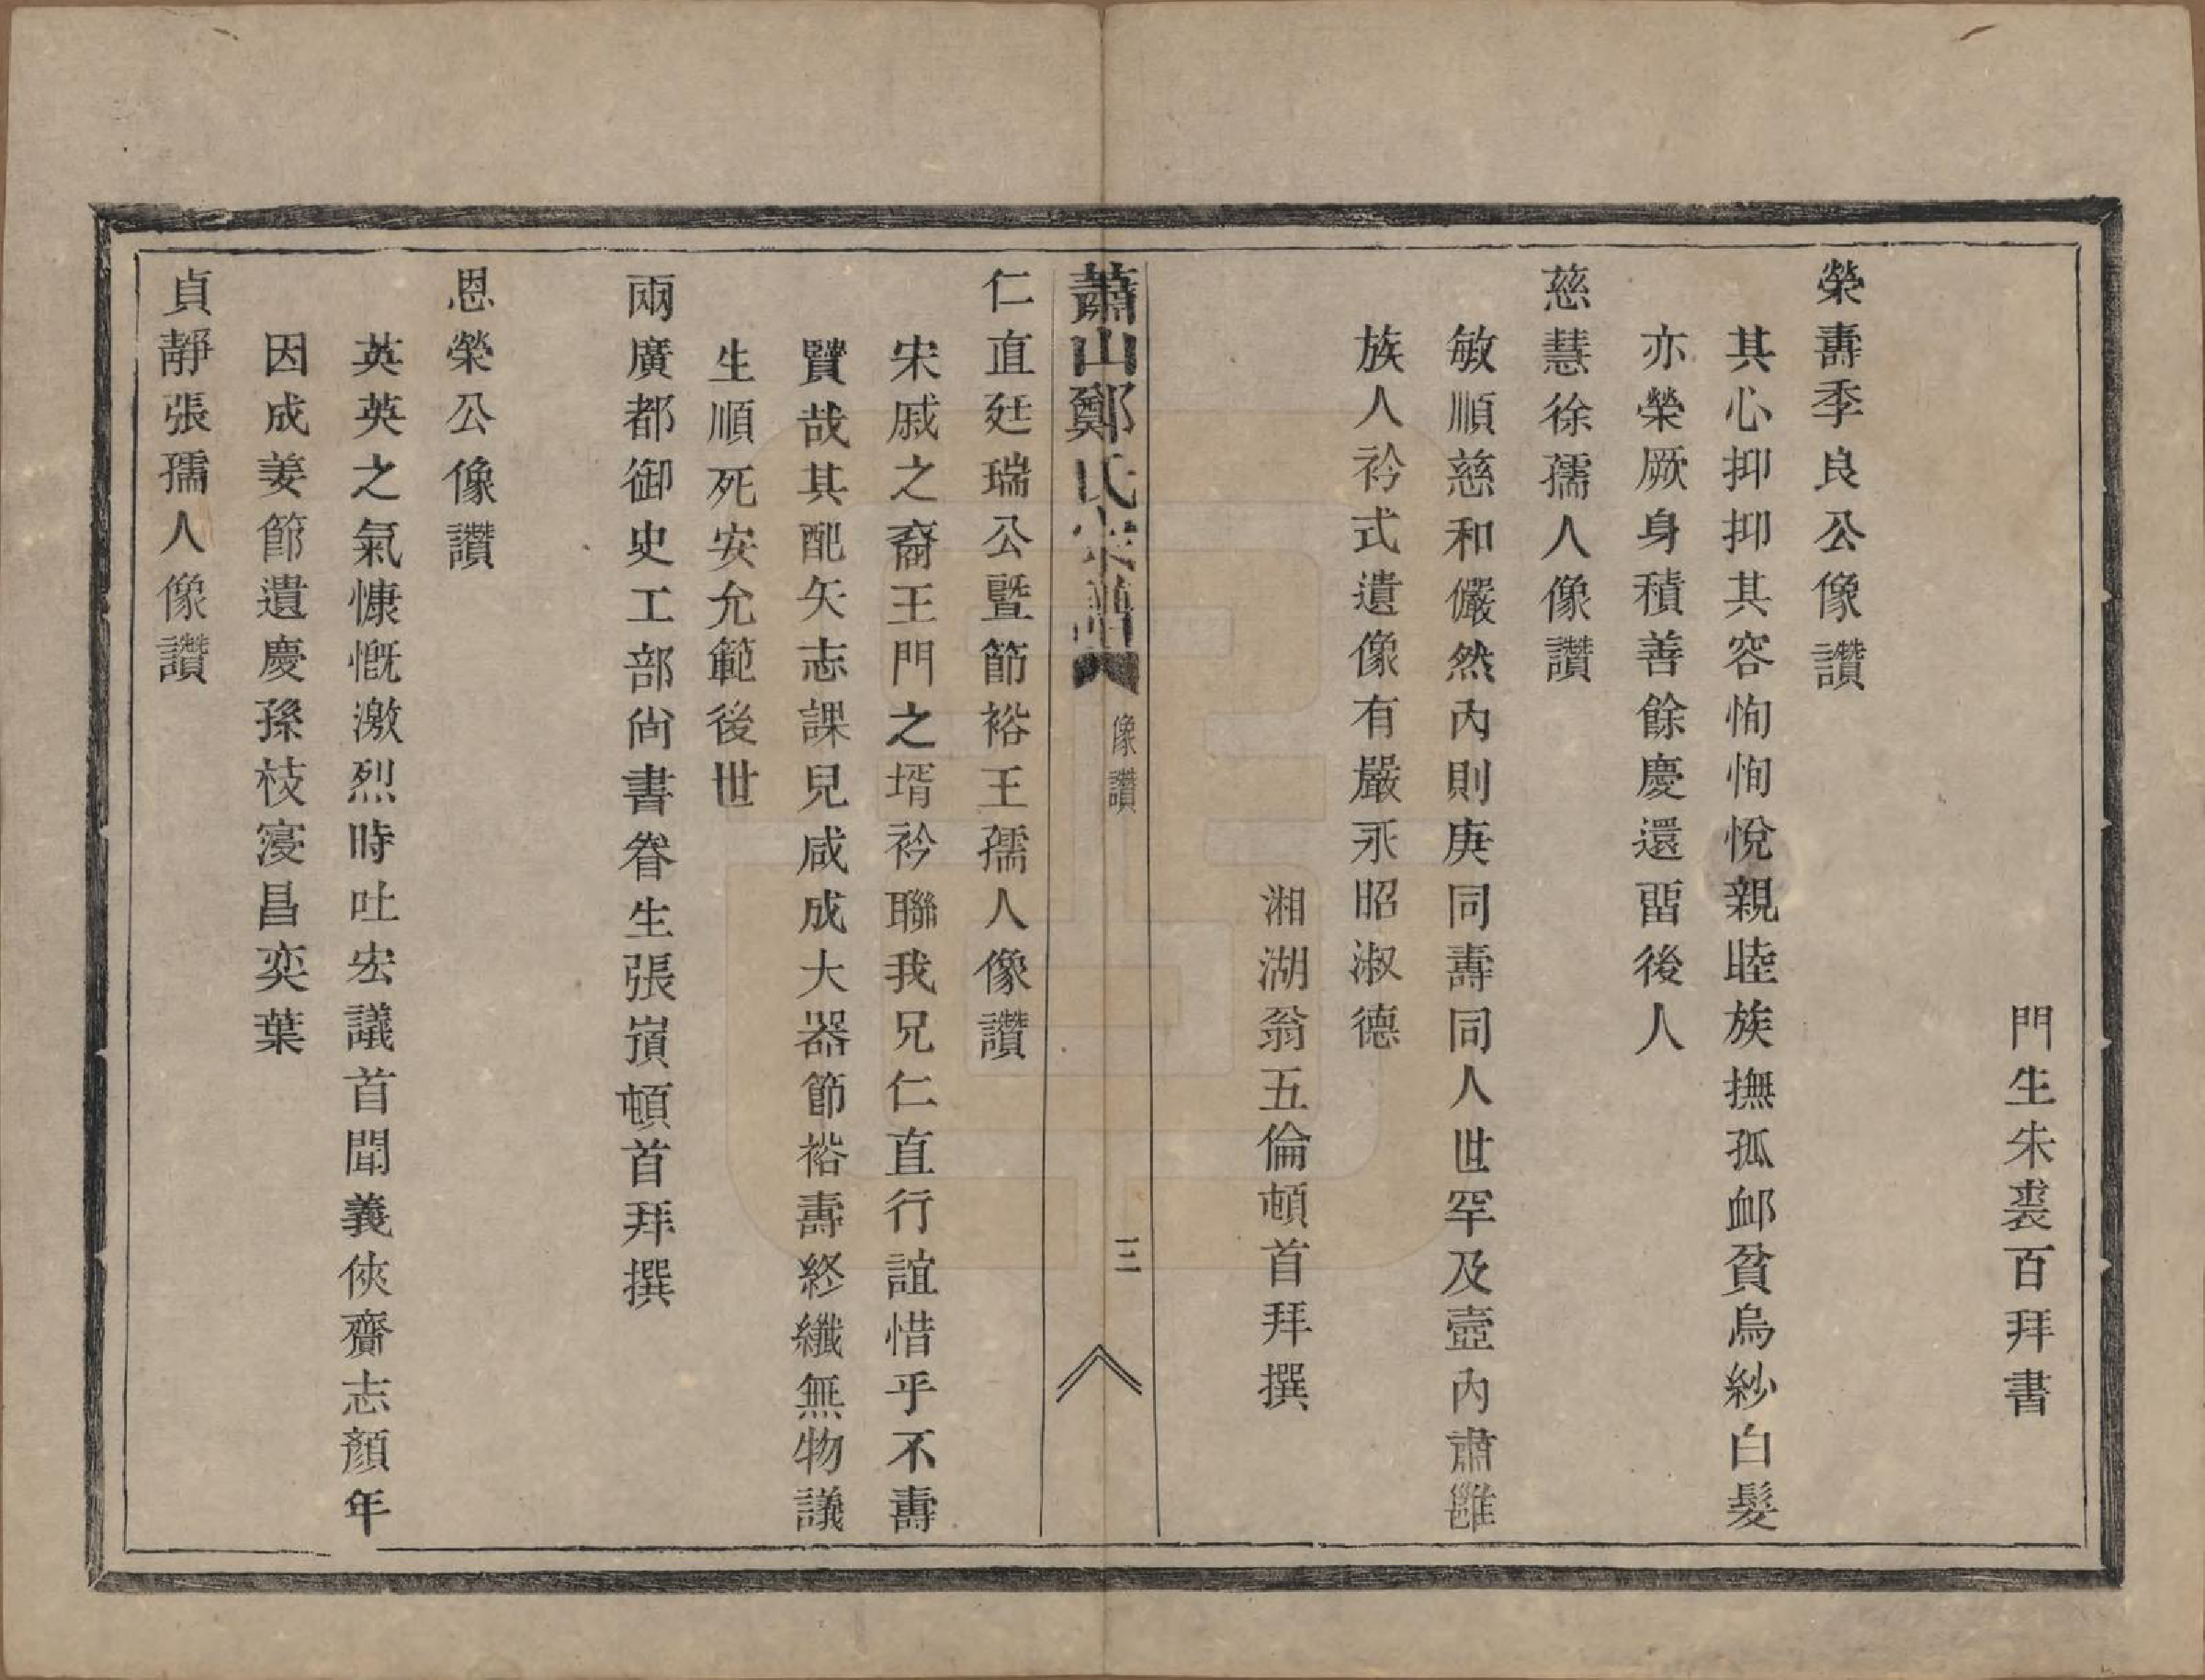 門生朱裘百拜書
榮壽季良公像讚
其心抑抑其容恂恂悅親睦族撫孤卹貧烏紗白髮
亦榮厥身積善餘慶還畱後人
慈慧徐孺人像讚
敏順慈和儼然內則庚同壽同人世罕及壼內肅雝
族人衿式遺像有嚴永昭淑德
湘湖翁五倫頓首拜撰
蕭山鄭氏宗譜
像讚
三
仁直廷瑞公暨節裕王孺人像讚
宋戚之裔王門之壻衿聯我兄仁直行誼惜乎不壽
賢哉其配矢志課兒咸成大器節裕壽終纖無物議
生順死安允範後世
兩廣都御史工部尙書眷生張嵿頓首拜撰
恩榮公像讚
英英之氣慷慨激烈時吐宏議首聞義俠齎志顏年
因成姜節遺慶孫枝寖昌奕葉
貞靜張孺人像讚